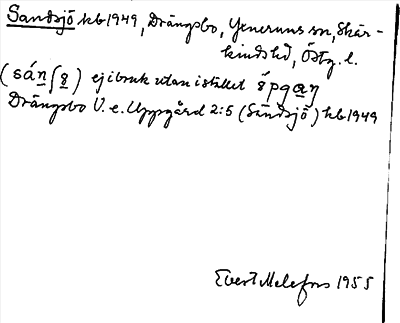 Sandsjö kb 1949, Drängsbo, Yxnerums sn, Skär-
kinds hd, Östg. l.
ej i bruk utan istället
Drängsbo U. e. Uppgård 2:5 (Sandsjö) kb 1949
Evert Melefors 1955